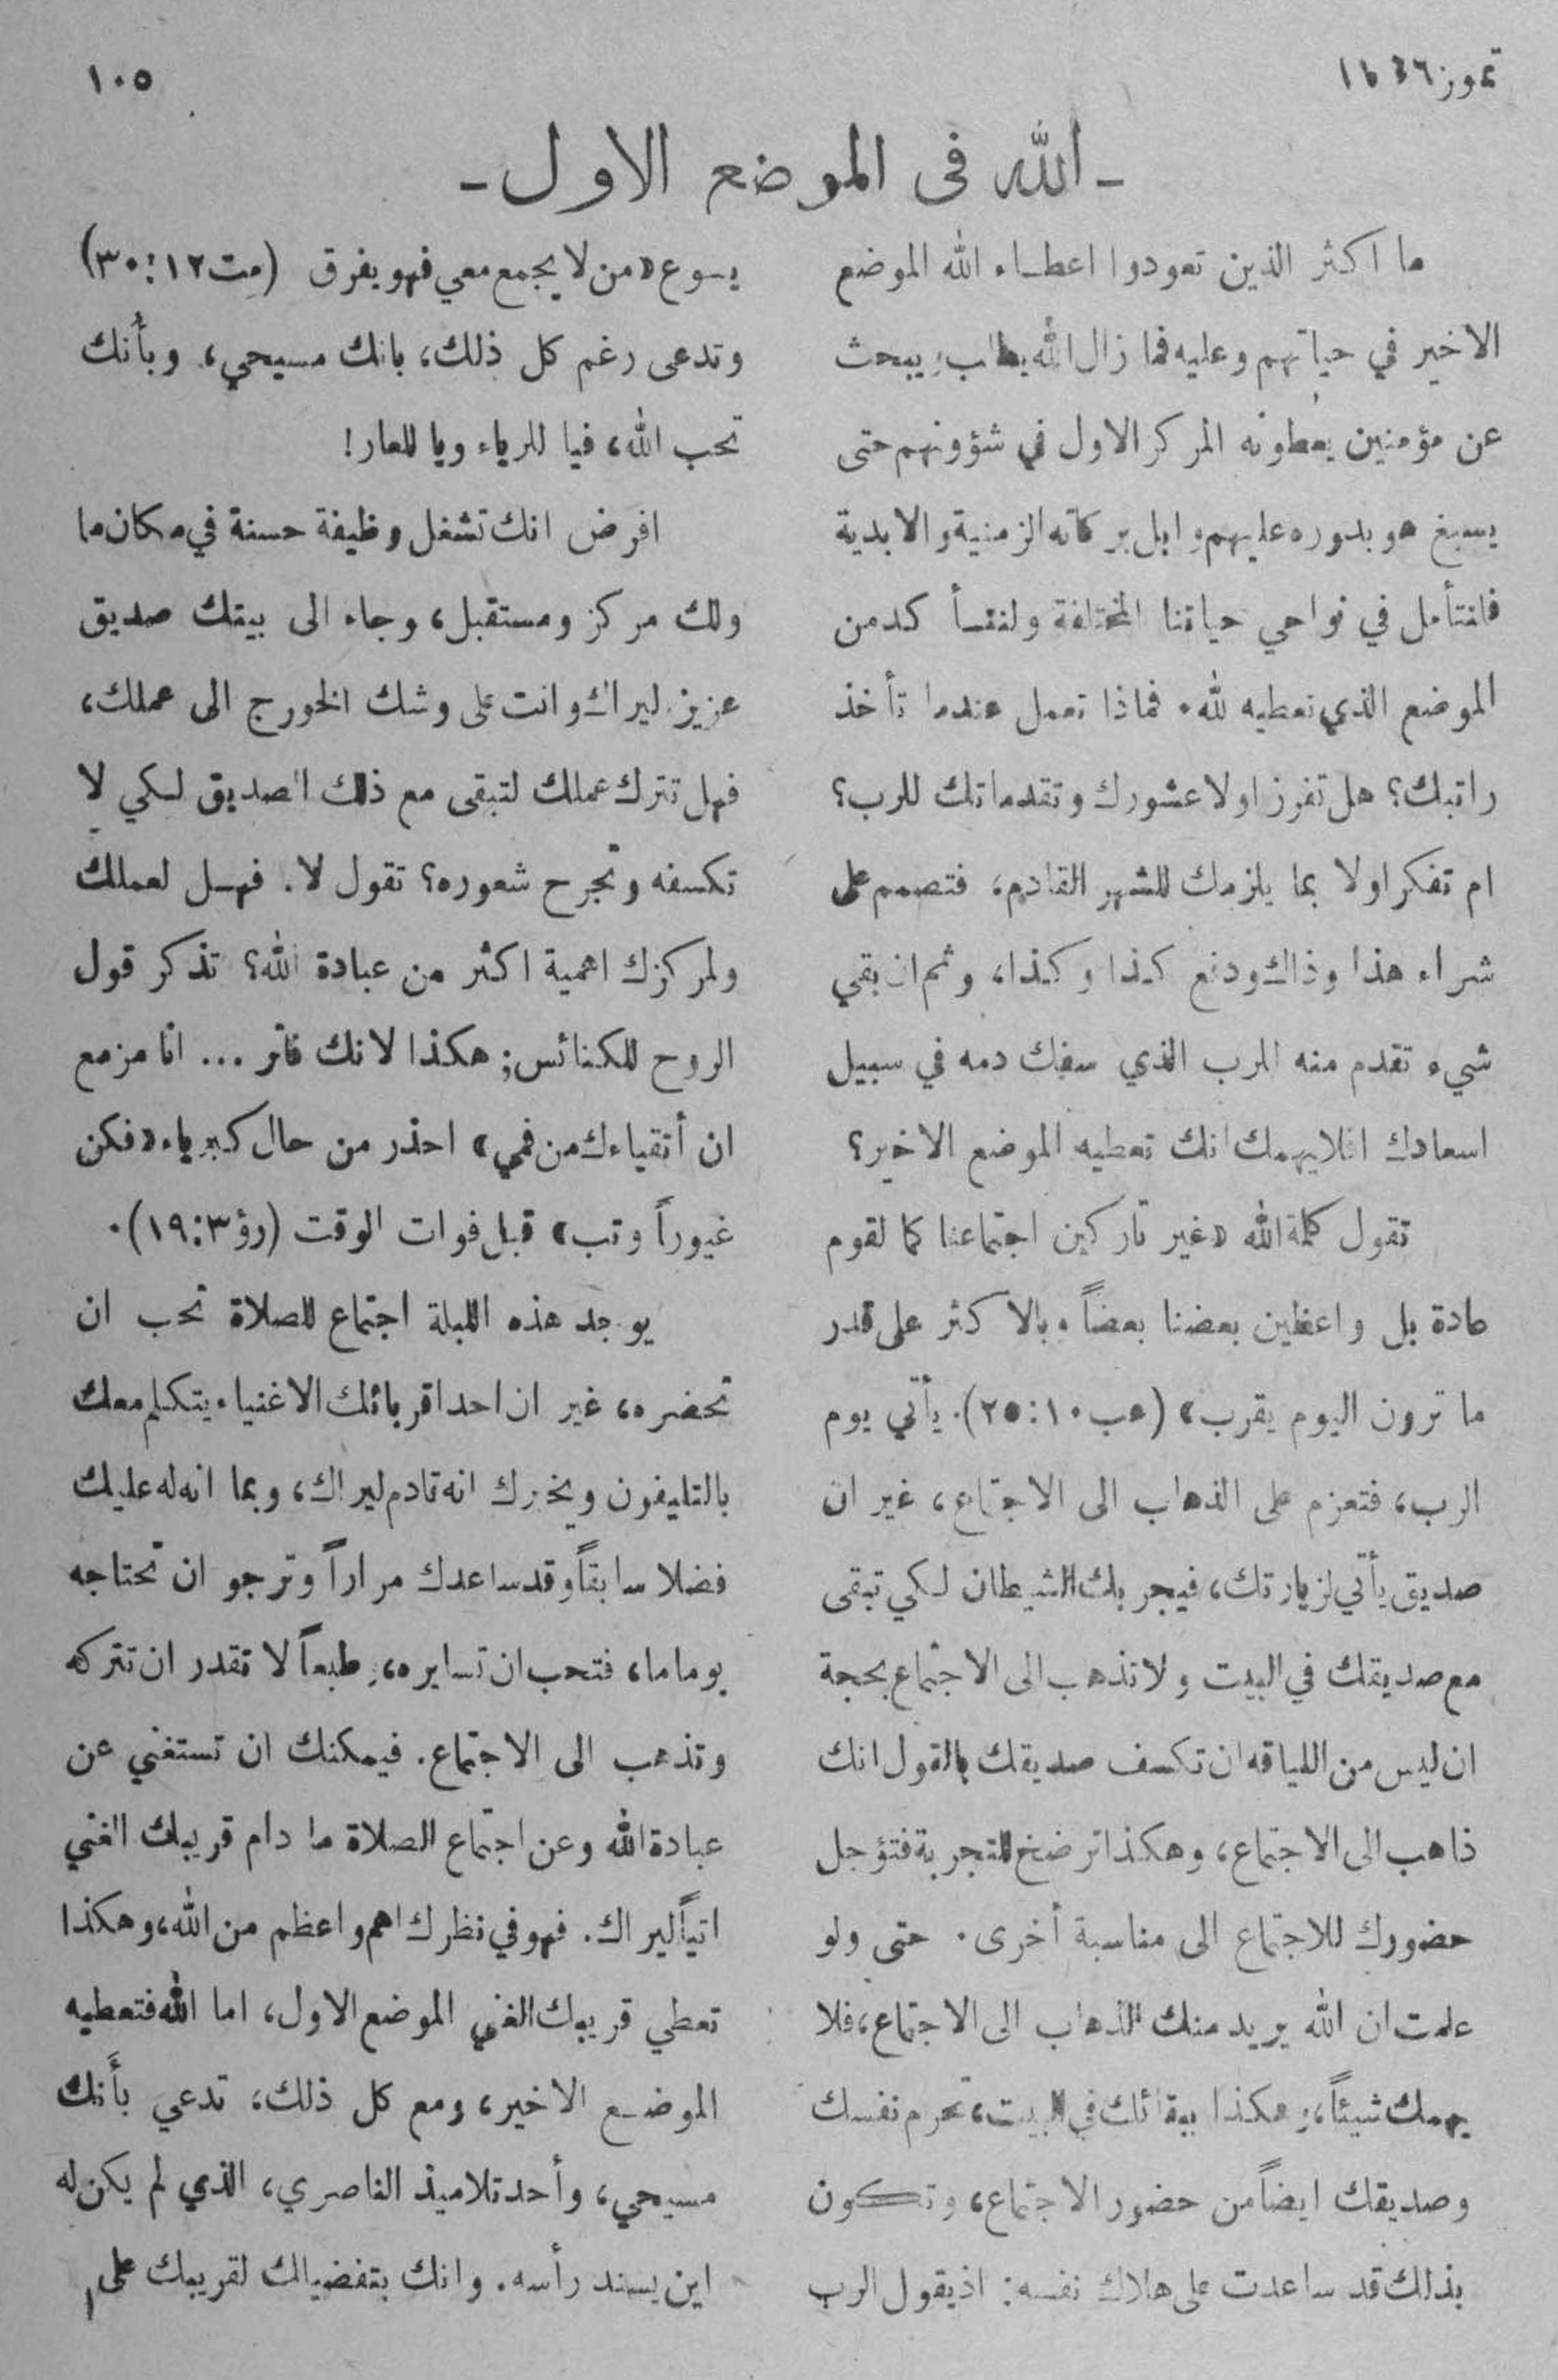 تموز ١٩٤٦
١٠٥
ـ الله فى الموضع الاول ـ
ما اكثر الذين تعودوا اعطاء الله الموضع
الاخير في حياتهم وعليه فما زال الله يطلب ويبحث
عن مؤمنين يعطونه المركز الاول في شؤونهم حتى
يسبغ هو بدوره عليهم وابل بركاته الزمنية والابدية
فلنتأمل في نواحي حياتنا المختلفة ولنتأكد من
الموضع الذي نعطيه لله. فماذا تعمل عندما تأخذ
راتبك؟ هل تفرز اولا عشورك وتقدماتك للرب؟
ام تفكر اولا بما يلزمك للشهر القادم، فتصمم على
شراء هذا وذاك ودفع كذا وكذا، وثم ان بقي
شيء تقدم منه للرب الذي سفك دمه في سبيل
اسعادك افلا يهمك انك تعطيه الموضع الاخير؟
تقول كلمة الله «غير تاركين اجتماعنا كما لقوم
عادة بل واعظين بعضنا بعضاً وبالاكثر على قدر
ما ترون اليوم يقرب» (عب ١٠:٢٥). يأتي يوم
الرب، فتعزم على الذهاب الى الاجتماع، غير ان
صديق يأتي لزيارتك، فيجربك الشيطان لكي تبقى
مع صديقك في البيت ولا تذهب الى الاجتماع بحجة
ان ليس من اللياقه ان تكسف صديقك بالقول انك
ذاهب الى الاجتماع، وهكذا ترضخ للتجربة فتؤجل
حضورك للاجتماع الى مناسبة أخرى. حتى ولو
علمت ان الله يريد منك الذهاب الى الاجتماع، فلا
يهمك شيئاً، وهكذا ببقائك في البيت، تحرم نفسك
وصديقك ايضاً من حضور الاجتماع، وتكون
بذلك قد ساعدت على هلاك نفسه: اذ يقول الرب
يسوع «من لا يجمع معي فهو يفرق (مت ١٢:٣٠)
وتدعى رغم كل ذلك، بانك مسيحي، وبأنك
تحب الله، فيا للرياء ويا للعار!
افرض انك تشغل وظيفة حسنة في مكان ما
ولك مركز ومستقبل، وجاء الى بيتك صديق
عزيز ليراك وانت على وشك الخروج الى عملك،
فهل تترك عملك لتبقى مع ذلك الصديق لكي لا
تكسفه وتجرح شعوره؟ تقول لا. فهل لعملك
ولمركزك اهمية اكثر من عبادة الله؟ تذكر قول
الروح للكنائس; هكذا لانك فاتر ... انا مزمع
ان أتقياءك من فمي» احذر من حال كبرياء «فكن
غيوراً وتب» قبل فوات الوقت (رؤ ٣:١٩).
يوجد هذه الليلة اجتماع للصلاة تحب ان
تحضره، غير ان احد اقربائك الاغنياء يتكلم معك
بالتليفون ويخبرك انه قادم ليراك، وبما انه له عليك
فضلا سابقاً وقد ساعدك مراراً وترجو ان تحتاجه
يوما ما، فتحب ان تسايره، وطبعاً لا تقدر ان تتركه
وتذهب الى الاجتماع. فيمكنك ان تستغني عن
عبادة الله وعن اجتماع الصلاة ما دام قريبك الغني
اتياً ليراك. فهو في نظرك اهم واعظم من الله، وهكذا
تعطي قريبك الغني الموضع الاول، اما الله فتعطيه
الموضع الاخير، ومع كل ذلك، تدعي بأَنك
مسيحي، وأحد تلاميذ الناصري، الذي لم يكن له
اين يسند رأسه. وانك بتفضيلك لقريبك على